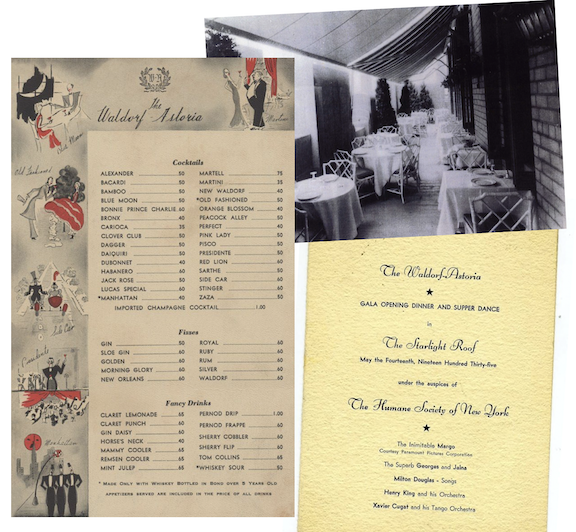 W-A
The
Waldorf Astoria
Martini
Blue Moon
Old Fashioned
Side Car
Manhattan
Cocktails
ALEXANDER .50
BACARDI .50
BAMBOO .50
BLUE MOON .50
BONNIE PRINCE CHARLIE .60
BRONX .40
CARIOCA .35
CLOVER CLUB .50
DAGGER .50
DAIQUIRI .50
DUBONNET .40
HABANERO .60
JACK ROSE .50
LUCAS SPECIAL .60
*MANHATTAN .40
MARTELL .75
MARTINI .35
NEW WALDORF .40
*OLD FASHIONED .50
ORANGE BLOSSOM .40
PEACOCK ALLEY .50
PERFECT .40
PINK LADY .50
PISCO .50
PRESIDENTE .50
RED LION .60
SARTHE .50
SIDE CAR .60
STINGER .60
ZAZA .50
IMPORTED CHAMPAGNE COCKTAIL 1.00
Fizzes
GIN .50
SLOE GIN .60
GOLDEN .60
MORNING GLORY .60
NEW ORLEANS .60
ROYAL .60
RUBY .60
RUM .60
SILVER .60
WALDORF .60
Fancy Drinks
CLARET LEMONADE .65
CLARET PUNCH .60
GIN DAISY .60
HORSE'S NECK .40
MAMMY COOLER .60
REMSEN COOLER .60
MINT JULEP .75
PERNOD DRIP 1.00
PERNOD FRAPPE .60
SHERRY COBBLER .60
SHERRY FLIP .60
TOM COLLINS .65
*WHISKEY SOUR .50
* MADE ONLY WITH WHISKEY BOTTLED IN BOND OVER 5 YEARS OLD
APPETISERS SERVED ARE INCLUDED IN THE PRICE OF ALL DRINKS
The Waldorf-Astoria
★
GALA OPENING DINNER AND SUPPER DANCE
in
The Starlight Roof
May the Fourteenth, Nineteen Hundred Thirty-five
under the auspices of
The Humane Society of New York
★
The Inimitable Margo
Courtesy Paramount Pictures Corporation
The Superb Georges and Jalna
Milton Douglas - Songs
Henry King and his Orchestra
Xavier Cugat and his Tango Orchestra